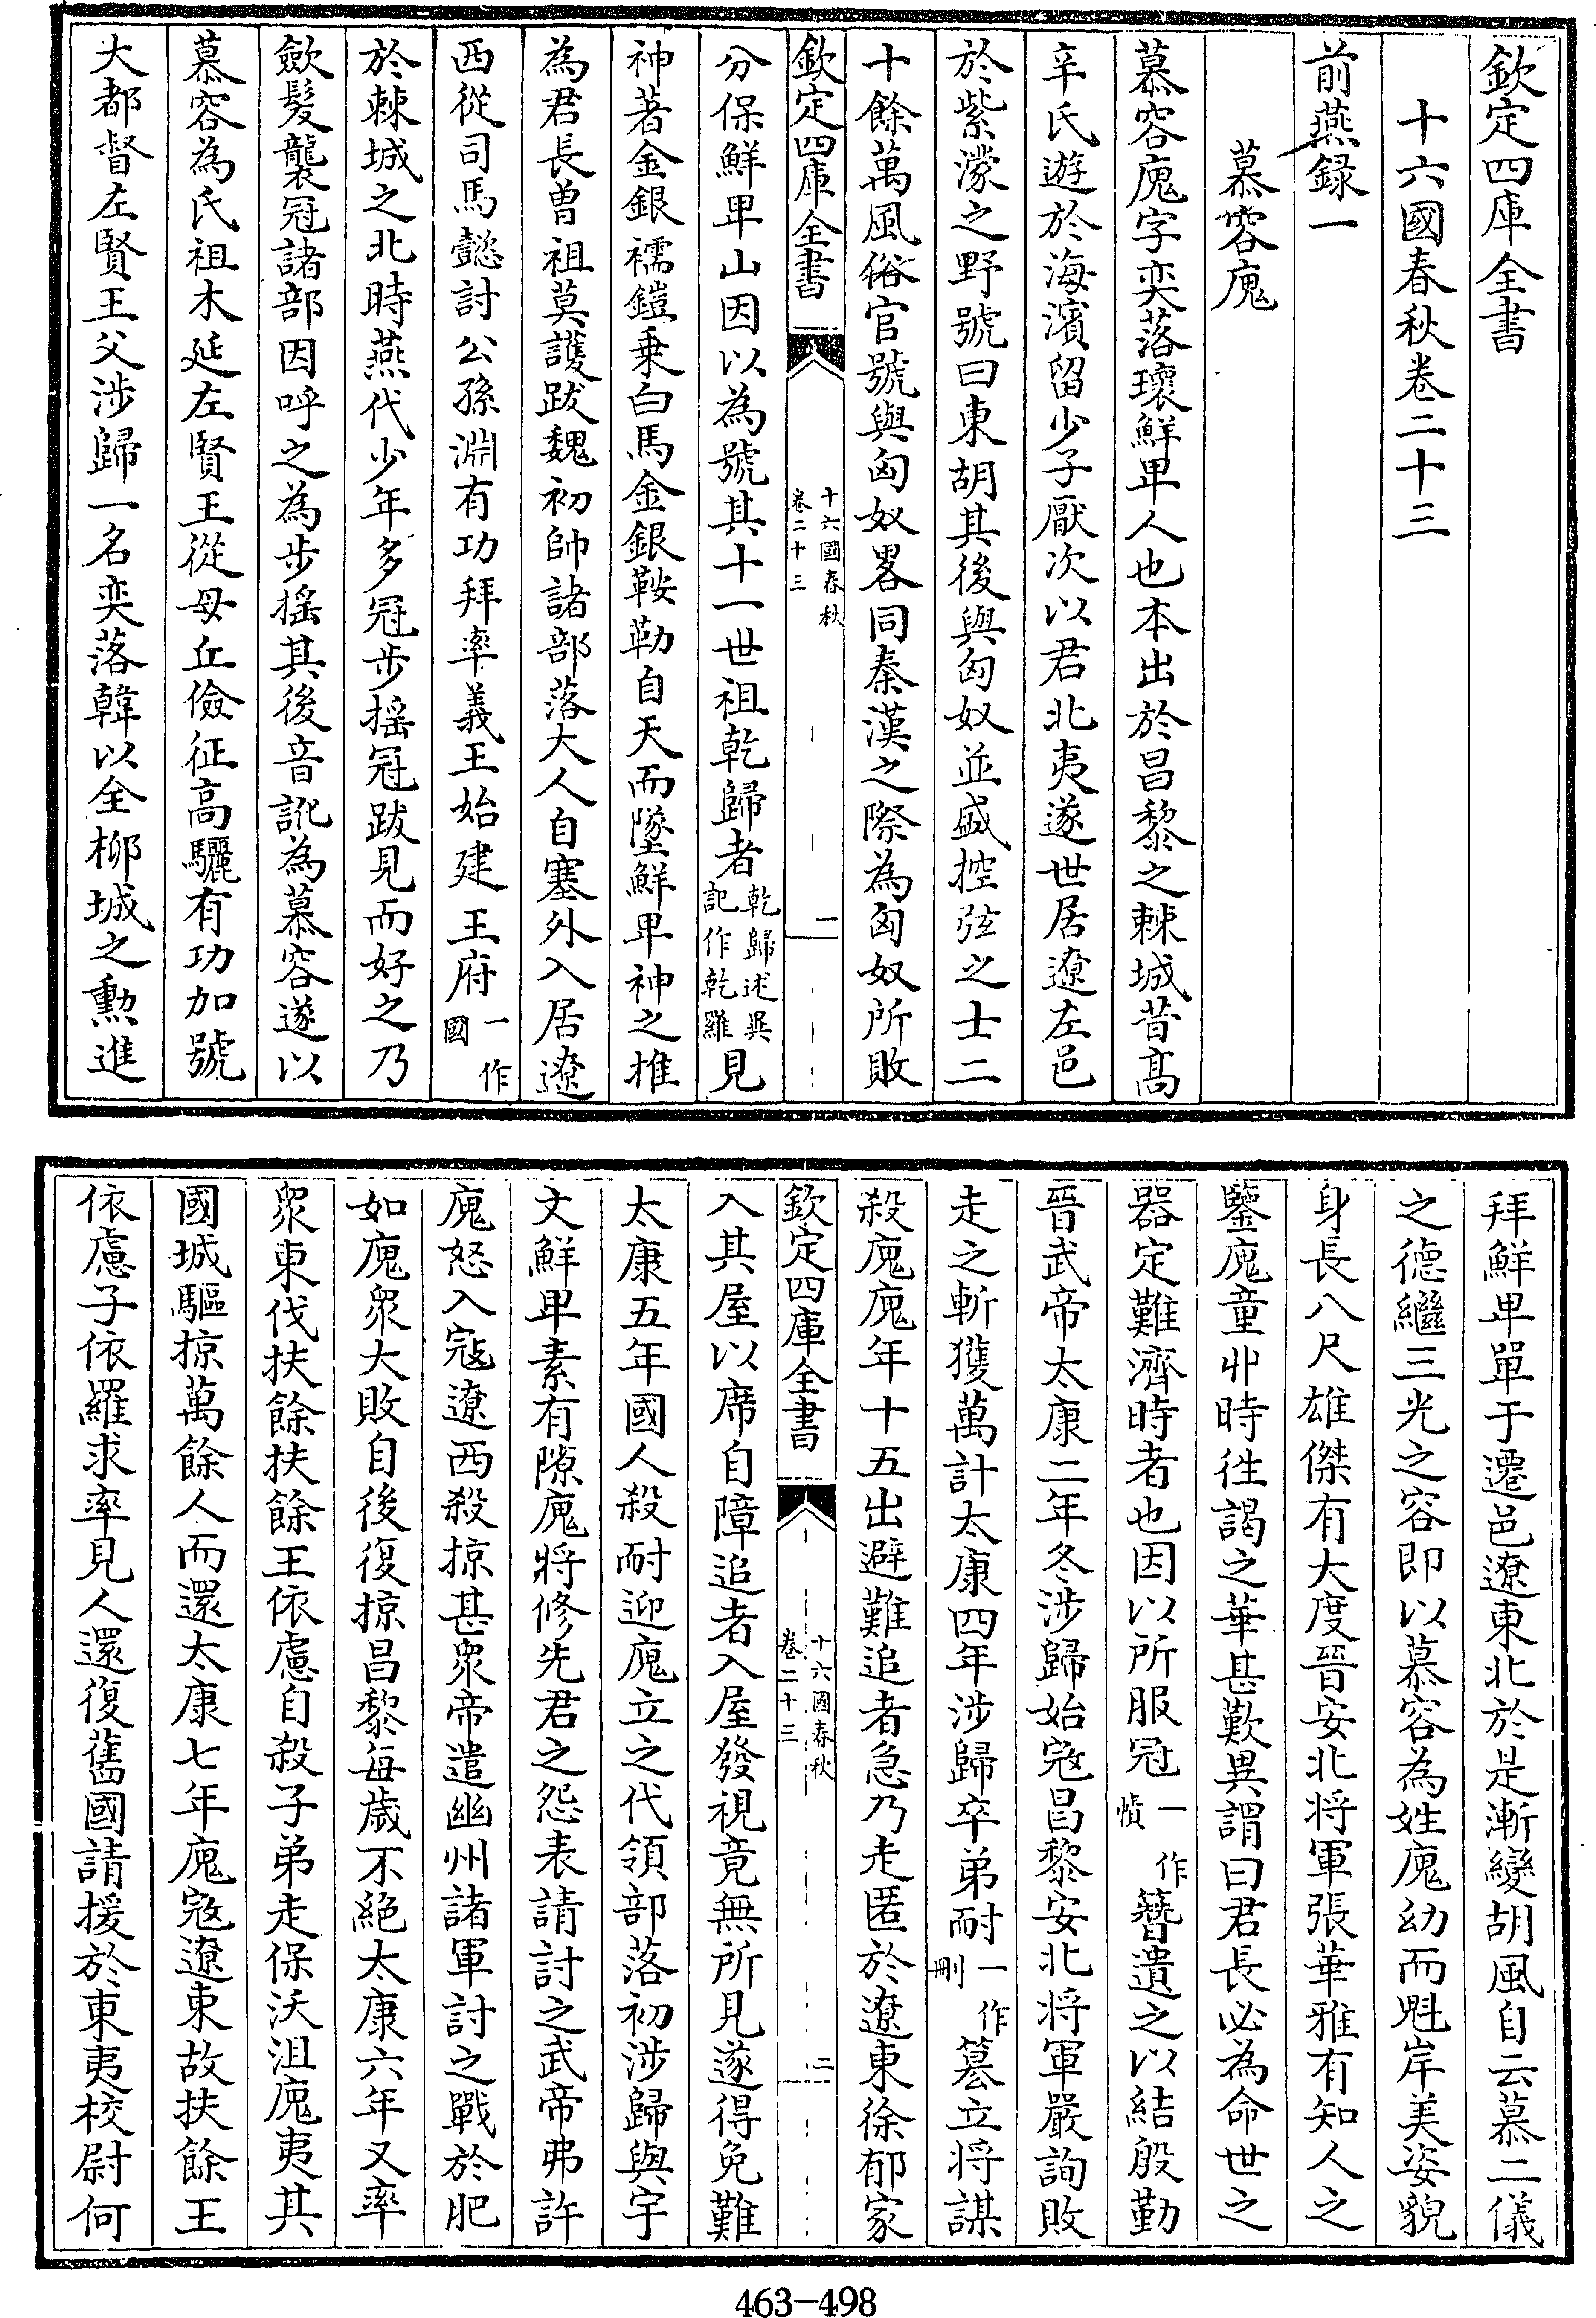 欽定四庫全書
十六國春秋卷二十三
前燕録一
慕容廆
慕容廆字奕落瓌鮮卑人也本出於昌黎之棘城昔高
辛氏遊於海濱留少子厭次以君北夷遂世居遼左邑
於紫濛之野號曰東胡其後與匈奴並盛控弦之士二
十餘萬風俗官號與匈奴畧同秦漢之際為匈奴所敗
欽定四庫全書
十六國春秋
卷二十三
一
分保鮮卑山因以為號其十一世祖乾歸者乾歸述異記作乾羅見
神著金銀襦鎧乗白馬金銀鞍勒自天而墜鮮卑神之推
為君長曽祖莫護跋魏初帥諸部落大人自塞外入居遼
西從司馬懿討公孫淵有功拜率義王始建王府一作國
於棘城之北時燕代少年多冠步摇冠跋見而好之乃
歛髮襲冠諸部因呼之為步摇其後音訛為慕容遂以
慕容為氏祖木延左賢王從毋丘儉征高驪有功加號
大都督左賢王父涉歸一名奕落韓以全柳城之勲進
拜鮮卑單于遷邑遼東北於是漸變胡風自云慕二儀
之德繼三光之容即以慕容為姓廆幼而魁岸美姿貌
身長八尺雄傑有大度晉安北将軍張華雅有知人之
鑒廆童丱時徃謁之華甚歎異謂曰君長必為命世之
器定難濟時者也因以所服冠一作幘簪遺之以結殷勤
晉武帝太康二年冬涉歸始寇昌黎安北将軍嚴詢敗
走之斬獲萬計太康四年涉歸卒弟耐一作刪簒立将謀
殺廆廆年十五出避難追者急乃走匿於遼東徐郁家
欽定四庫全書
十六國春秋
卷二十三
二
入其屋以席自障追者入屋發視竟無所見遂得免難
太康五年國人殺耐迎廆立之代領部落初涉歸與宇
文鮮卑素有隙廆將修先君之怨表請討之武帝弗許
廆怒入寇遼西殺掠甚衆帝遣幽州諸軍討之戰於肥
如廆衆大敗自後復掠昌黎每歲不絶太康六年又率
衆東伐扶餘扶餘王依慮自殺子弟走保沃沮廆夷其
國城驅掠萬餘人而還太康七年廆寇遼東故扶餘王
依慮子依羅求率見人還復舊國請援於東夷校尉何
463-498